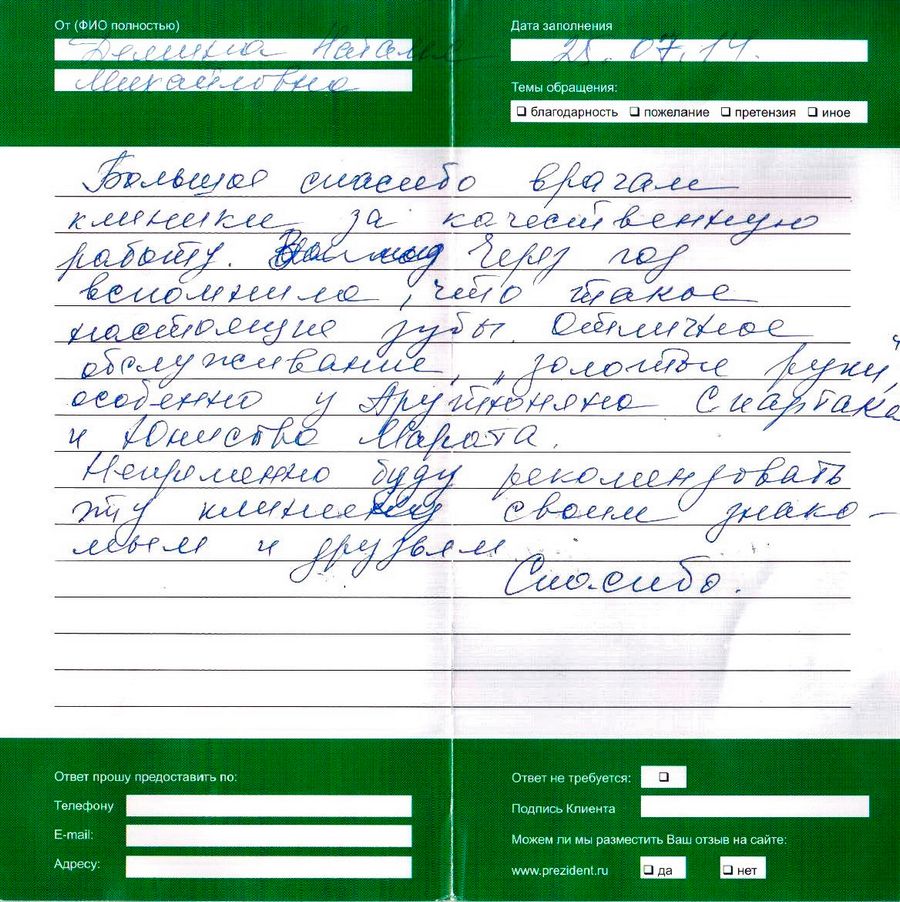 От (ФИО полностью)
Демина Наталья
Михайловна
Дата заполнения
21.07.14.
Темы обращения:
благодарность пожелание претензия иное
Большое спасибо врачам
клиники за качественную
работу. Через год
вспомнила, что такое
настоящие зубы. Отличное
обслуживание, „золотые руки“,
особенно у Арутюняна Спартака
и Юнисова Марата.
Непременно буду рекомендовать
эту клинику своим знако-
мым и друзьям
Спасибо.
Ответ прошу предоставить по:
Телефону
E-mail:
Адресу:
Ответ не требуется:
Подпись Клиента
Можем ли мы разместить Ваш отзыв на сайте:
www.prezident.ru да нет